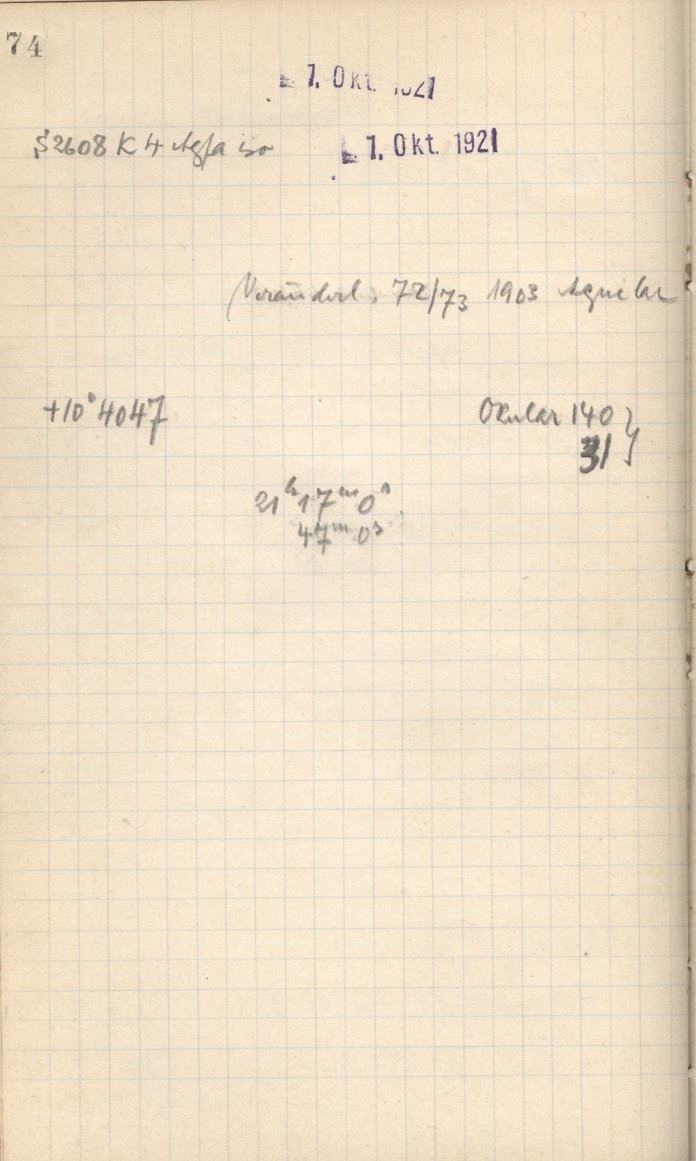 74
7. Okt. 1921
S2608 K4 Agfa iso
7. Okt. 1921
Veränderl. 72/73 1903 Aquilae
+10°4047
Okular 140
31
21h 17m 0s
47m 0s